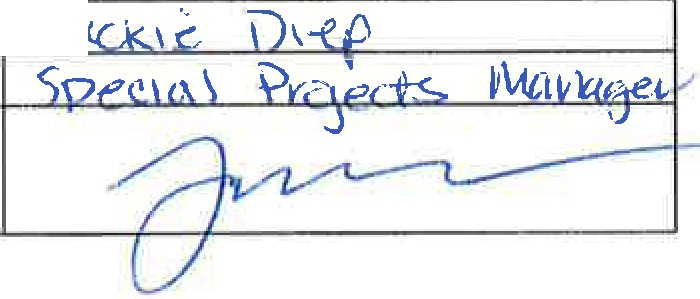 ckie Diep
Special Projects Manager